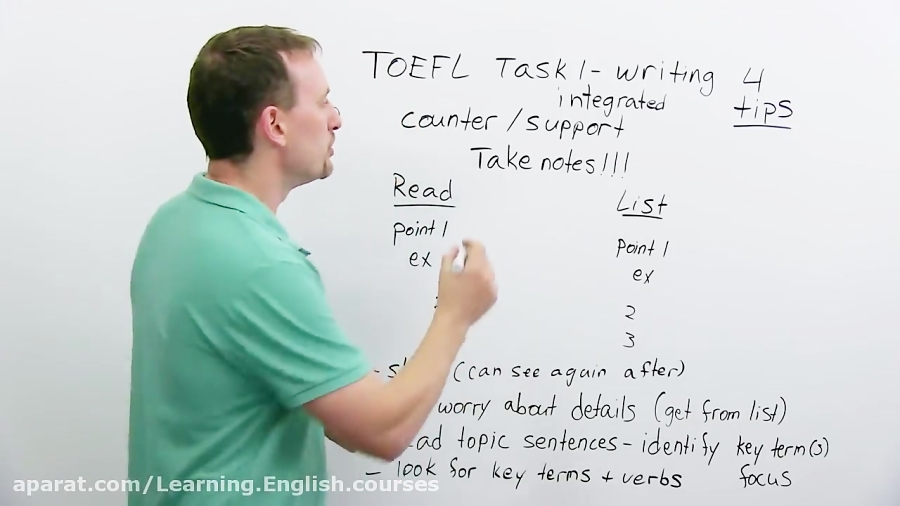 TOEFL Task 1 - writing 4
integrated tips
counter / support
Take notes!!!
Read List
point 1 point 1
ex ex
2
3
(can see again after)
worry about details (get from list)
topic sentences - identify key term(s)
- look for key terms + verbs focus
aparat.com/Learning.English.courses